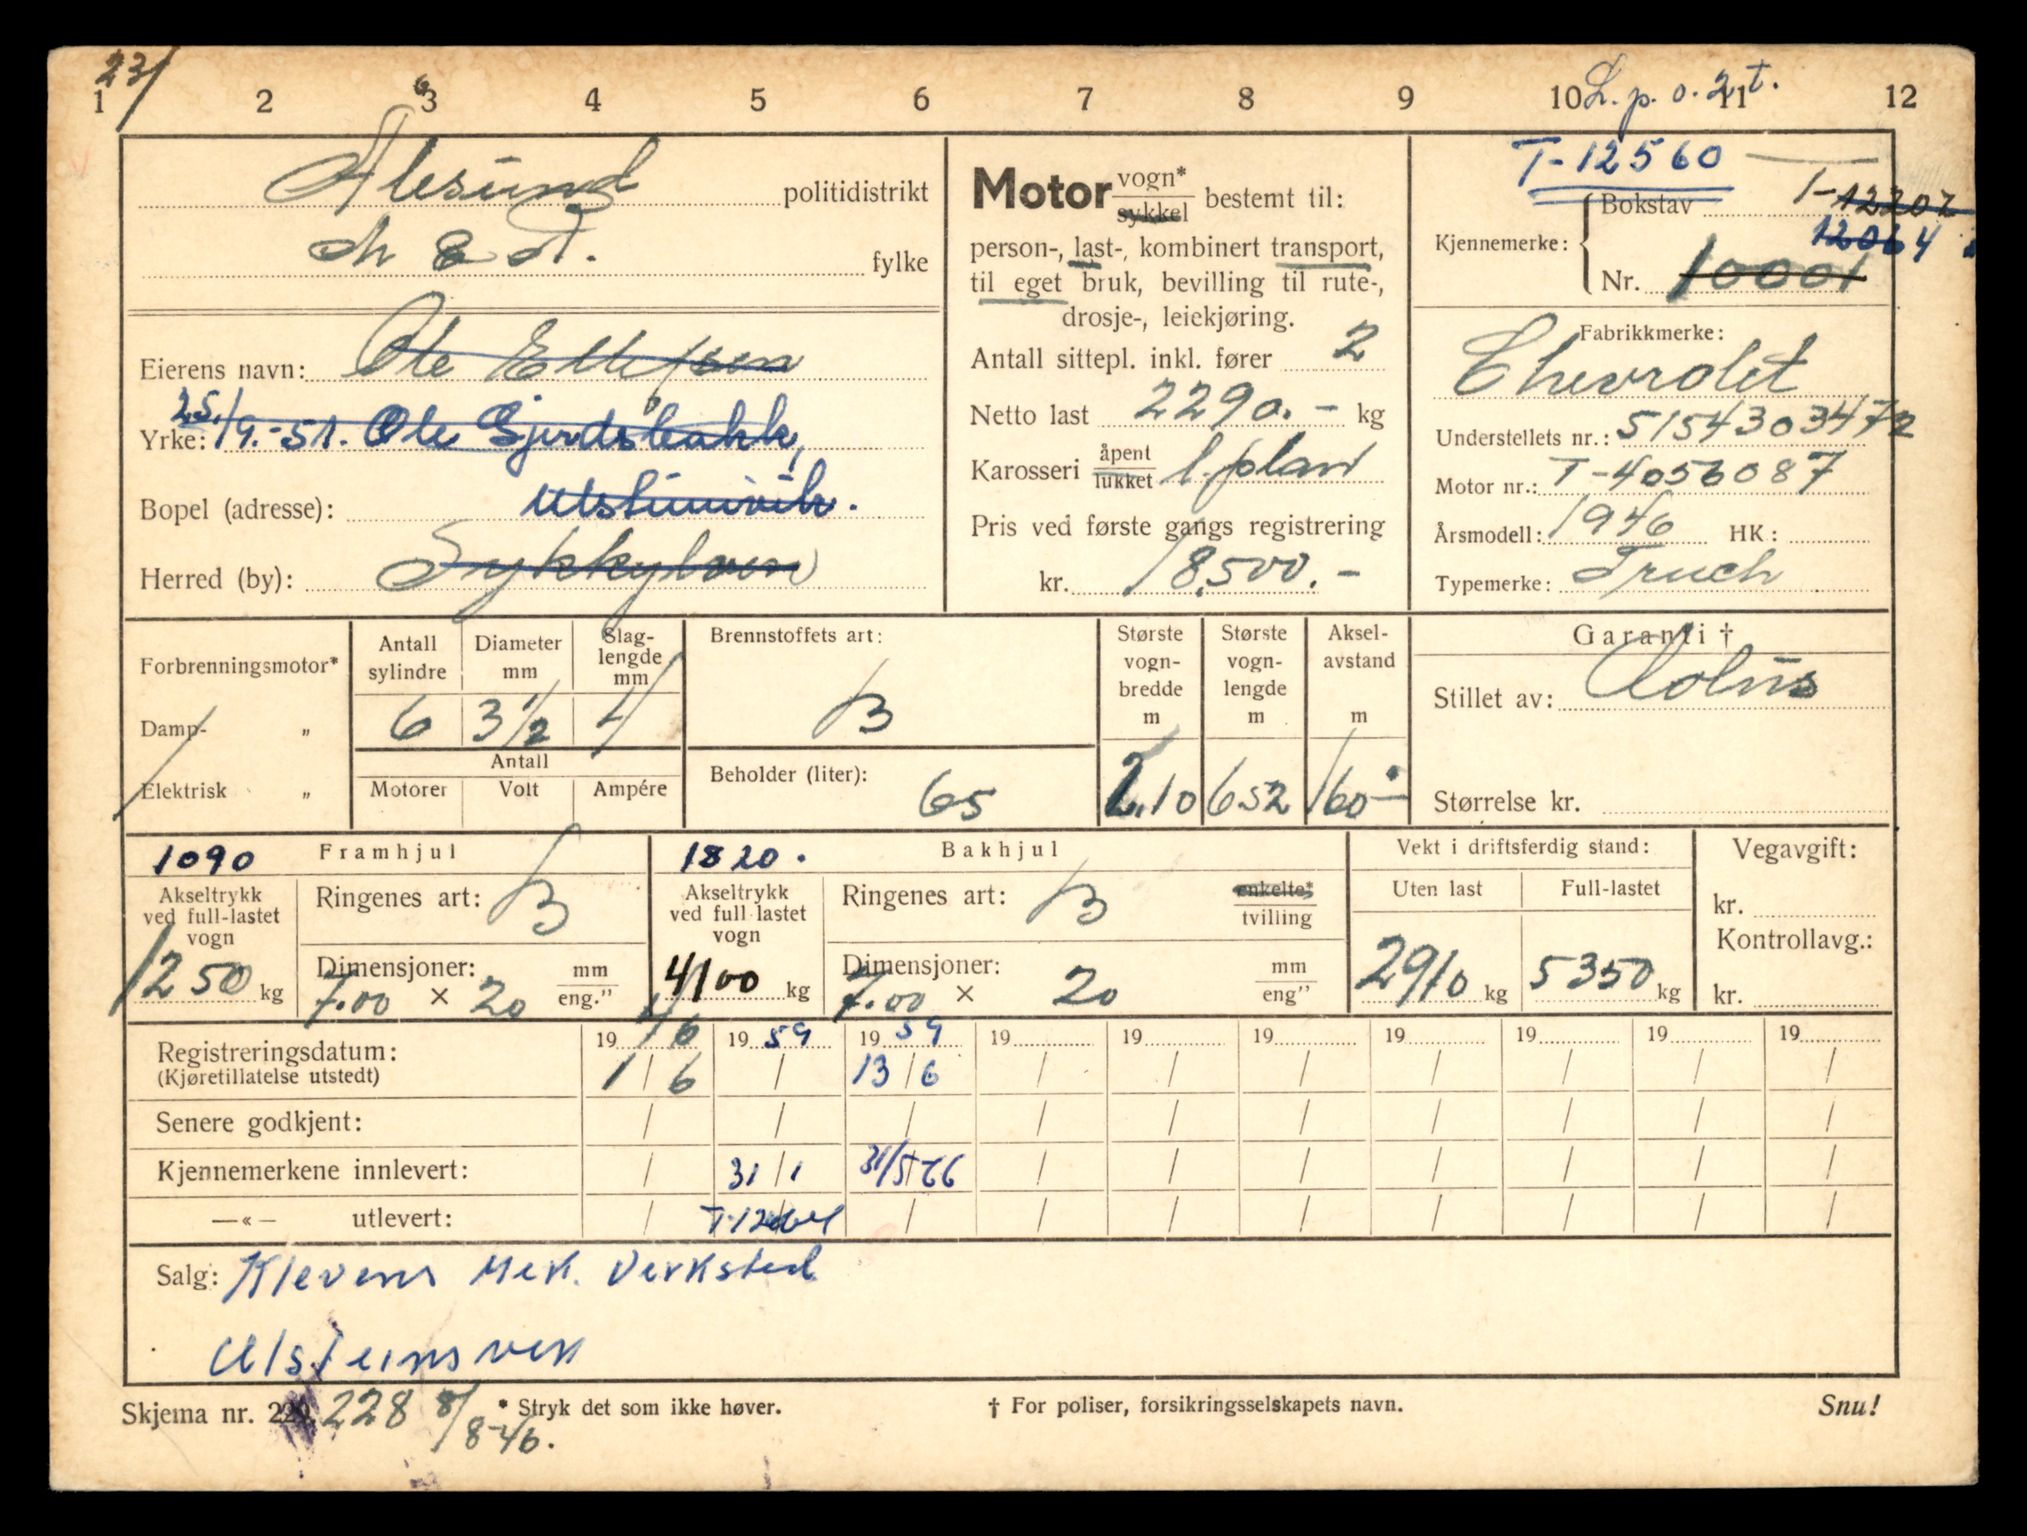 23/
1 2 3 4 5 6 7 8 9 10 11 12
6
L. p. o. 2 t.
Ålesund politidistrikt
M & R. fylke
Eierens navn: Ole Ellefsen
Yrke: 25./9.-51. Ole Gjerdsbakk,
Bopel (adresse): Ulsteinvik.
Herred (by): Sykkylven
Motor vogn* sykkel bestemt til:
person-, last-, kombinert transport,
til eget bruk, bevilling til rute-,
drosje-, leiekjøring.
Antall sittepl. inkl. fører 2
Netto last 2290.- kg
Karosseri åpent lukket l. plan
Pris ved første gangs registrering
kr. 18.500.-
T-12560
Kjennemerke: Bokstav T-12207
12064
Nr. 10001
Fabrikkmerke:
Chevrolet
Understellets nr.: 5154303472
Motor nr.: T-4056087
Årsmodell: 1946 HK:
Typemerke: Truck
Forbrenningsmotor*
Damp- „
Elektrisk „
Antall sylindre Diameter mm Slag-lengde mm
6 3 1/2 4
Antall
Motorer Volt Ampére
Brennstoffets art:
B
Beholder (liter): 65
Største vogn-bredde m Største vogn-lengde m Aksel-avstand m
2.10 652 160"
Garanti †
Stillet av: Æolus
Størrelse kr.
1090 Framhjul
Akseltrykk ved full-lastet vogn
1250 kg
Ringenes art: B
Dimensjoner: mm eng."
7.00 × 20
1820. Bakhjul
Akseltrykk ved full lastet vogn
4100 kg
Ringenes art: B enkelte* tvilling
Dimensjoner: mm eng"
7.00 × 20
Vekt i driftsferdig stand:
Uten last Full-lastet
2910 kg 5350 kg
Vegavgift:
kr.
Kontrollavg.:
kr.
Registreringsdatum: 1946 1959 1959 19 19 19 19 19 19 19
(Kjøretillatelse utstedt) 1/6 / 13/6 / / / / / / /
Senere godkjent: / / / / / / / / / /
Kjennemerkene innlevert: / 31/1 31/5 66 / / / / / / /
—«— utlevert: / T-12064 / / / / / / / /
Salg: Klevens Mek. Verksted
Ulsteinsvik
Skjema nr. 228 8/8-46.
* Stryk det som ikke høver.
† For poliser, forsikringsselskapets navn.
Snu!